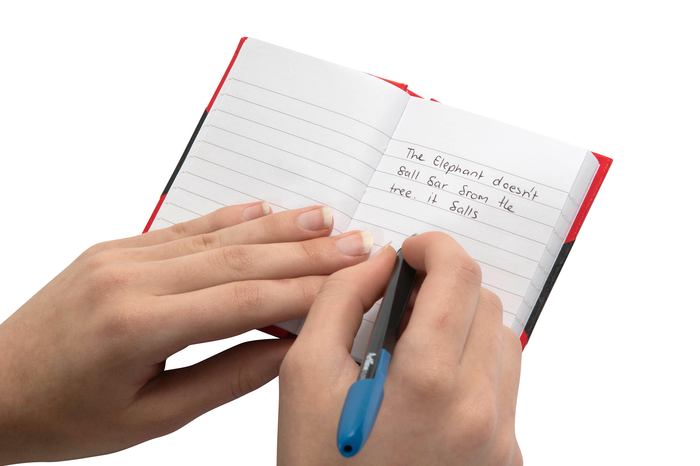 The Elephant doesn't
fall far from the
tree. it falls